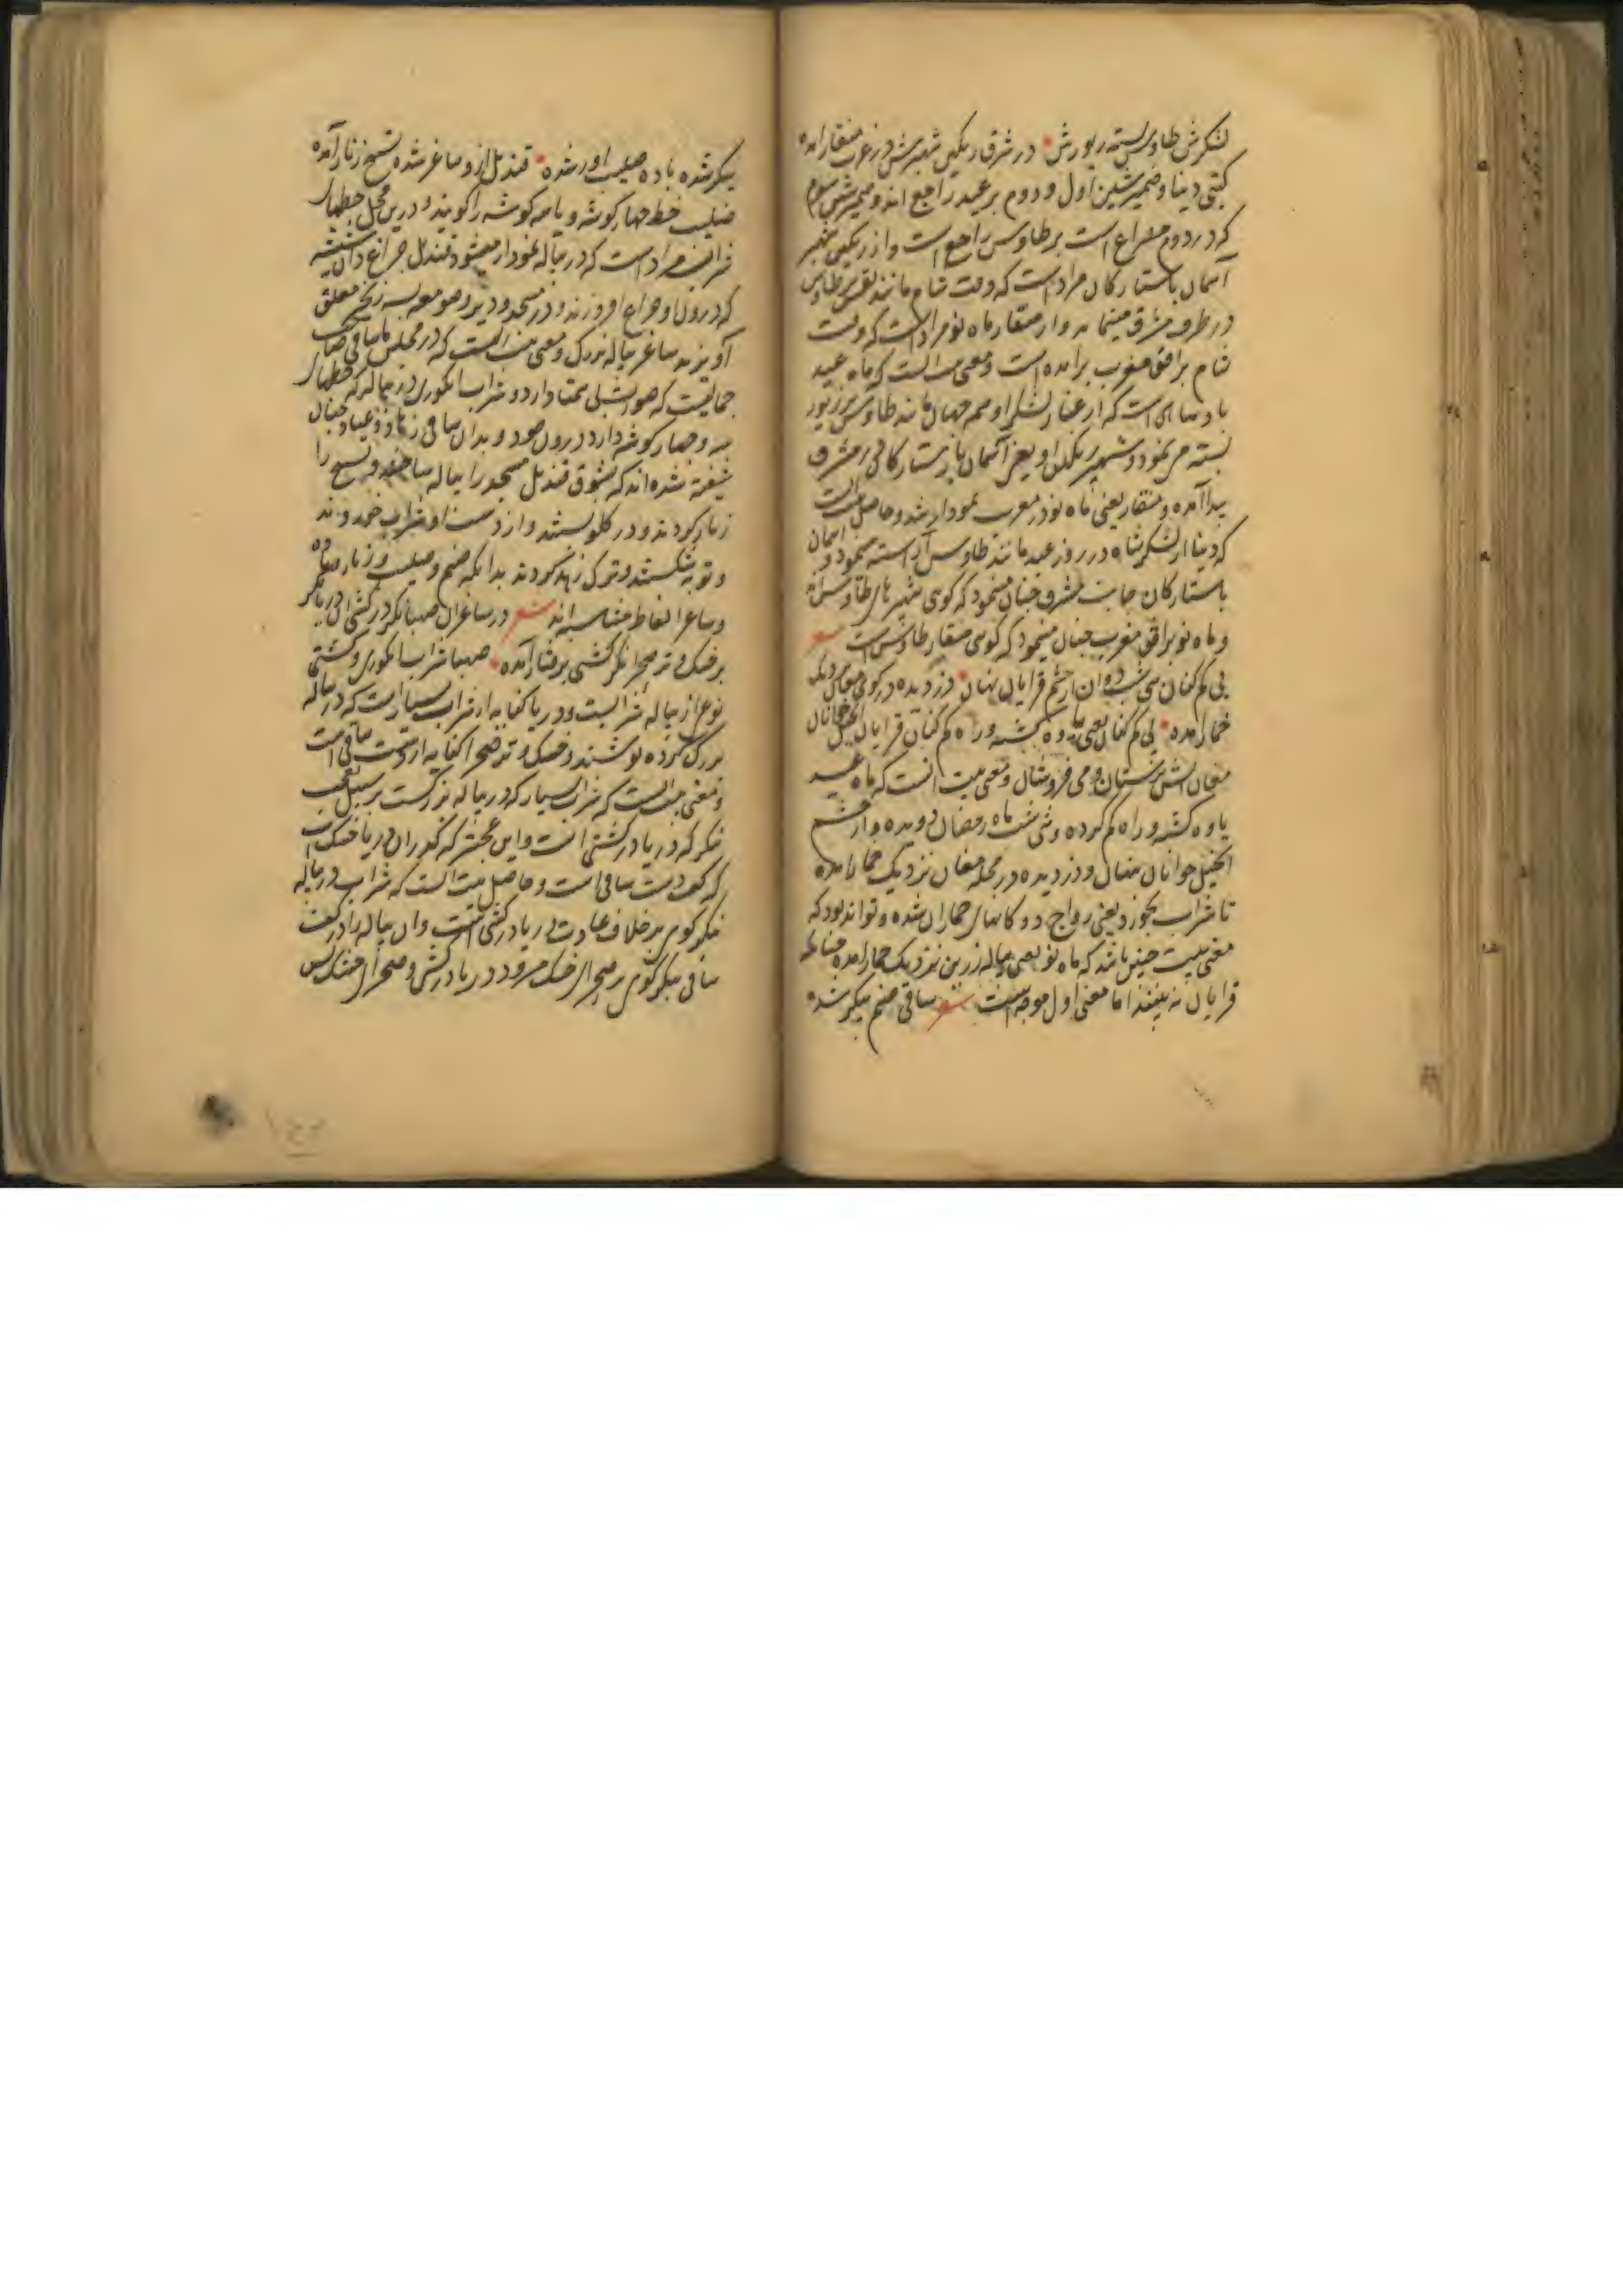 لشکرش طاوس بسته زیورش در شرق رنگین شهپرش در غرب منقار آمده
کیتی دنیا و ضمیر شین اول و دوم بر عید راجع اند و ضمیر شین سوم
که در دوم مصراع است بر طاوس راجع است و از رنگین شهپر
آسمان باستارکان مراد است که وقت شام مانند طاوس
در طرف مشرق مینماید و از منقار ماه نو مراد است که وقت
شام بر افق مغرب برامده است و معنی بیت است که ماه عید
بادشاهی است که از لشکر او همه جهان مانند طاوس پر زیور
بسته می نمود و شهپر رنگین او یعنی آسمان باستارکان در مشرق
پیدا آمده و منقار یعنی ماه نو در مغرب نمودار شد و حاصل بیت است
که دنیا از لشکر شاه در روز عید مانند طاوس آراسته مینمود و آسمان
باستارکان جانب مشرق چنان مینمود که کوئی شهپر های طاوس اند
و ماه نو بر افق مغرب چنان مینمود که کوئی منقار طاوس است
پی کم کنان سی شب دوان از چشم قرایان نهان دزدیده در کوی مغان نزدیک
خمار آمده پی کم کنان یعنی یاوه کشته و راه کم کنان قرایان
مغان آتش پرستان و می فروشان و معنی بیت آنست که ماه عید
یاوه کشته و راه کم کرده و سی شب ماه رمضان دویده و از چشم
انجیل خوانان پنهان و دزدیده در محله مغان نزدیک خمار آمده
تا شراب بخورد یعنی رواج دوکانهای خماران شده و تواند بود که
معنی بیت چنین باشد که ماه نو یعنی پیاله زرین نزدیک خمار آمده
قرایان نه بینند اما معنی اول موجه است شعر ساقی صنم پیکر شده
پیکر شده باده صلیب آور شده قندیل ازو ساغر شده تسبیح زنار آمده
صلیب خط چهار کوشه و یا سه کوشه را کویند و درین محل خطهای
شراب مراد است که در پیاله نمودار میشود قندیل چراغ دان شیشه
که درون او چراغ افروزند و در مسجد و دیر و صومعه به زنجیر معلق
آویزند ساغر پیاله بزرک و معنی بیت است که در مجلس ما ساقی صاحب
جمالیست که صورت بی همتا دارد و شراب انکوری در پیاله که خطهای
سه و چهار کوشه دارد درون و بدان ساقی زهاد و عباد چنان
شیفته شده اند که بشوق قندیل مسجد را پیاله ساختند و تسبیح را
زنار کردند و در کلو بستند و از دست او شراب خوردند
و توبه شکستند و ترک زهد کردند بدانکه صنم و صلیب و زنار و باده
و ساغر الفاظ متناسبه اند شعر در ساغر آن صهبا نکر در کشتی آن دریا نکر
بر خشک و تر صحرا نکر کشتی برفتار آمده صهبا شراب انکوری و کشتی
نوعی از پیاله شراب است و دریا کنایه از شراب بسیار است که در پیاله
بزرک کرده نوشند و خشک و تر صحرا کنایه از دست ساقی است
و معنی بیت است که شراب بسیار که در پیاله بزرکست بر سبیل تعجب
بنکر که دریا در کشتی است و این عجبتر که کذر آن دریا خشک است
که کف دست ساقی است و حاصل بیت است که شراب در پیاله
بنکر کوئی بر خلاف عادت دریا در کشتی است و آن پیاله را در کف
ساقی بنکر کوئی بر صحرای خشک میرود دریا در کشتی و صحرای خشک پس